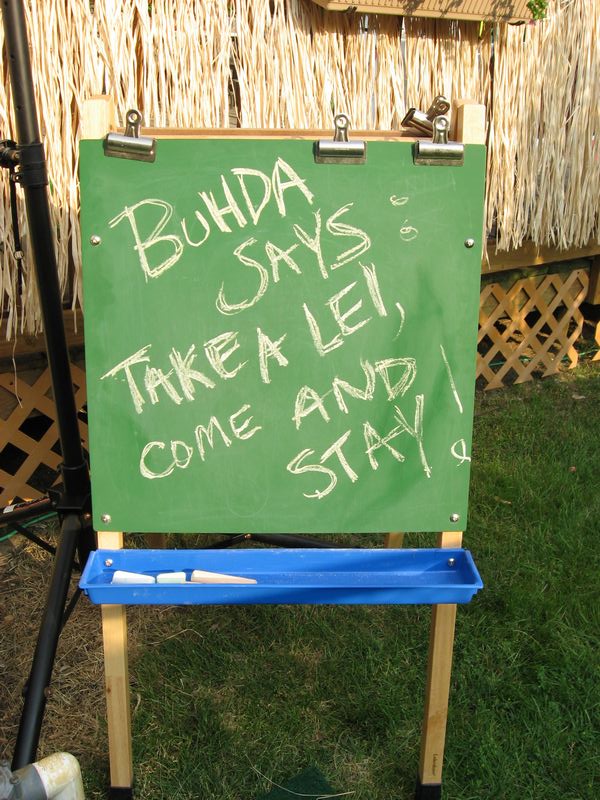 BUHDA
SAYS:
TAKE A LEI,
COME AND
STAY!